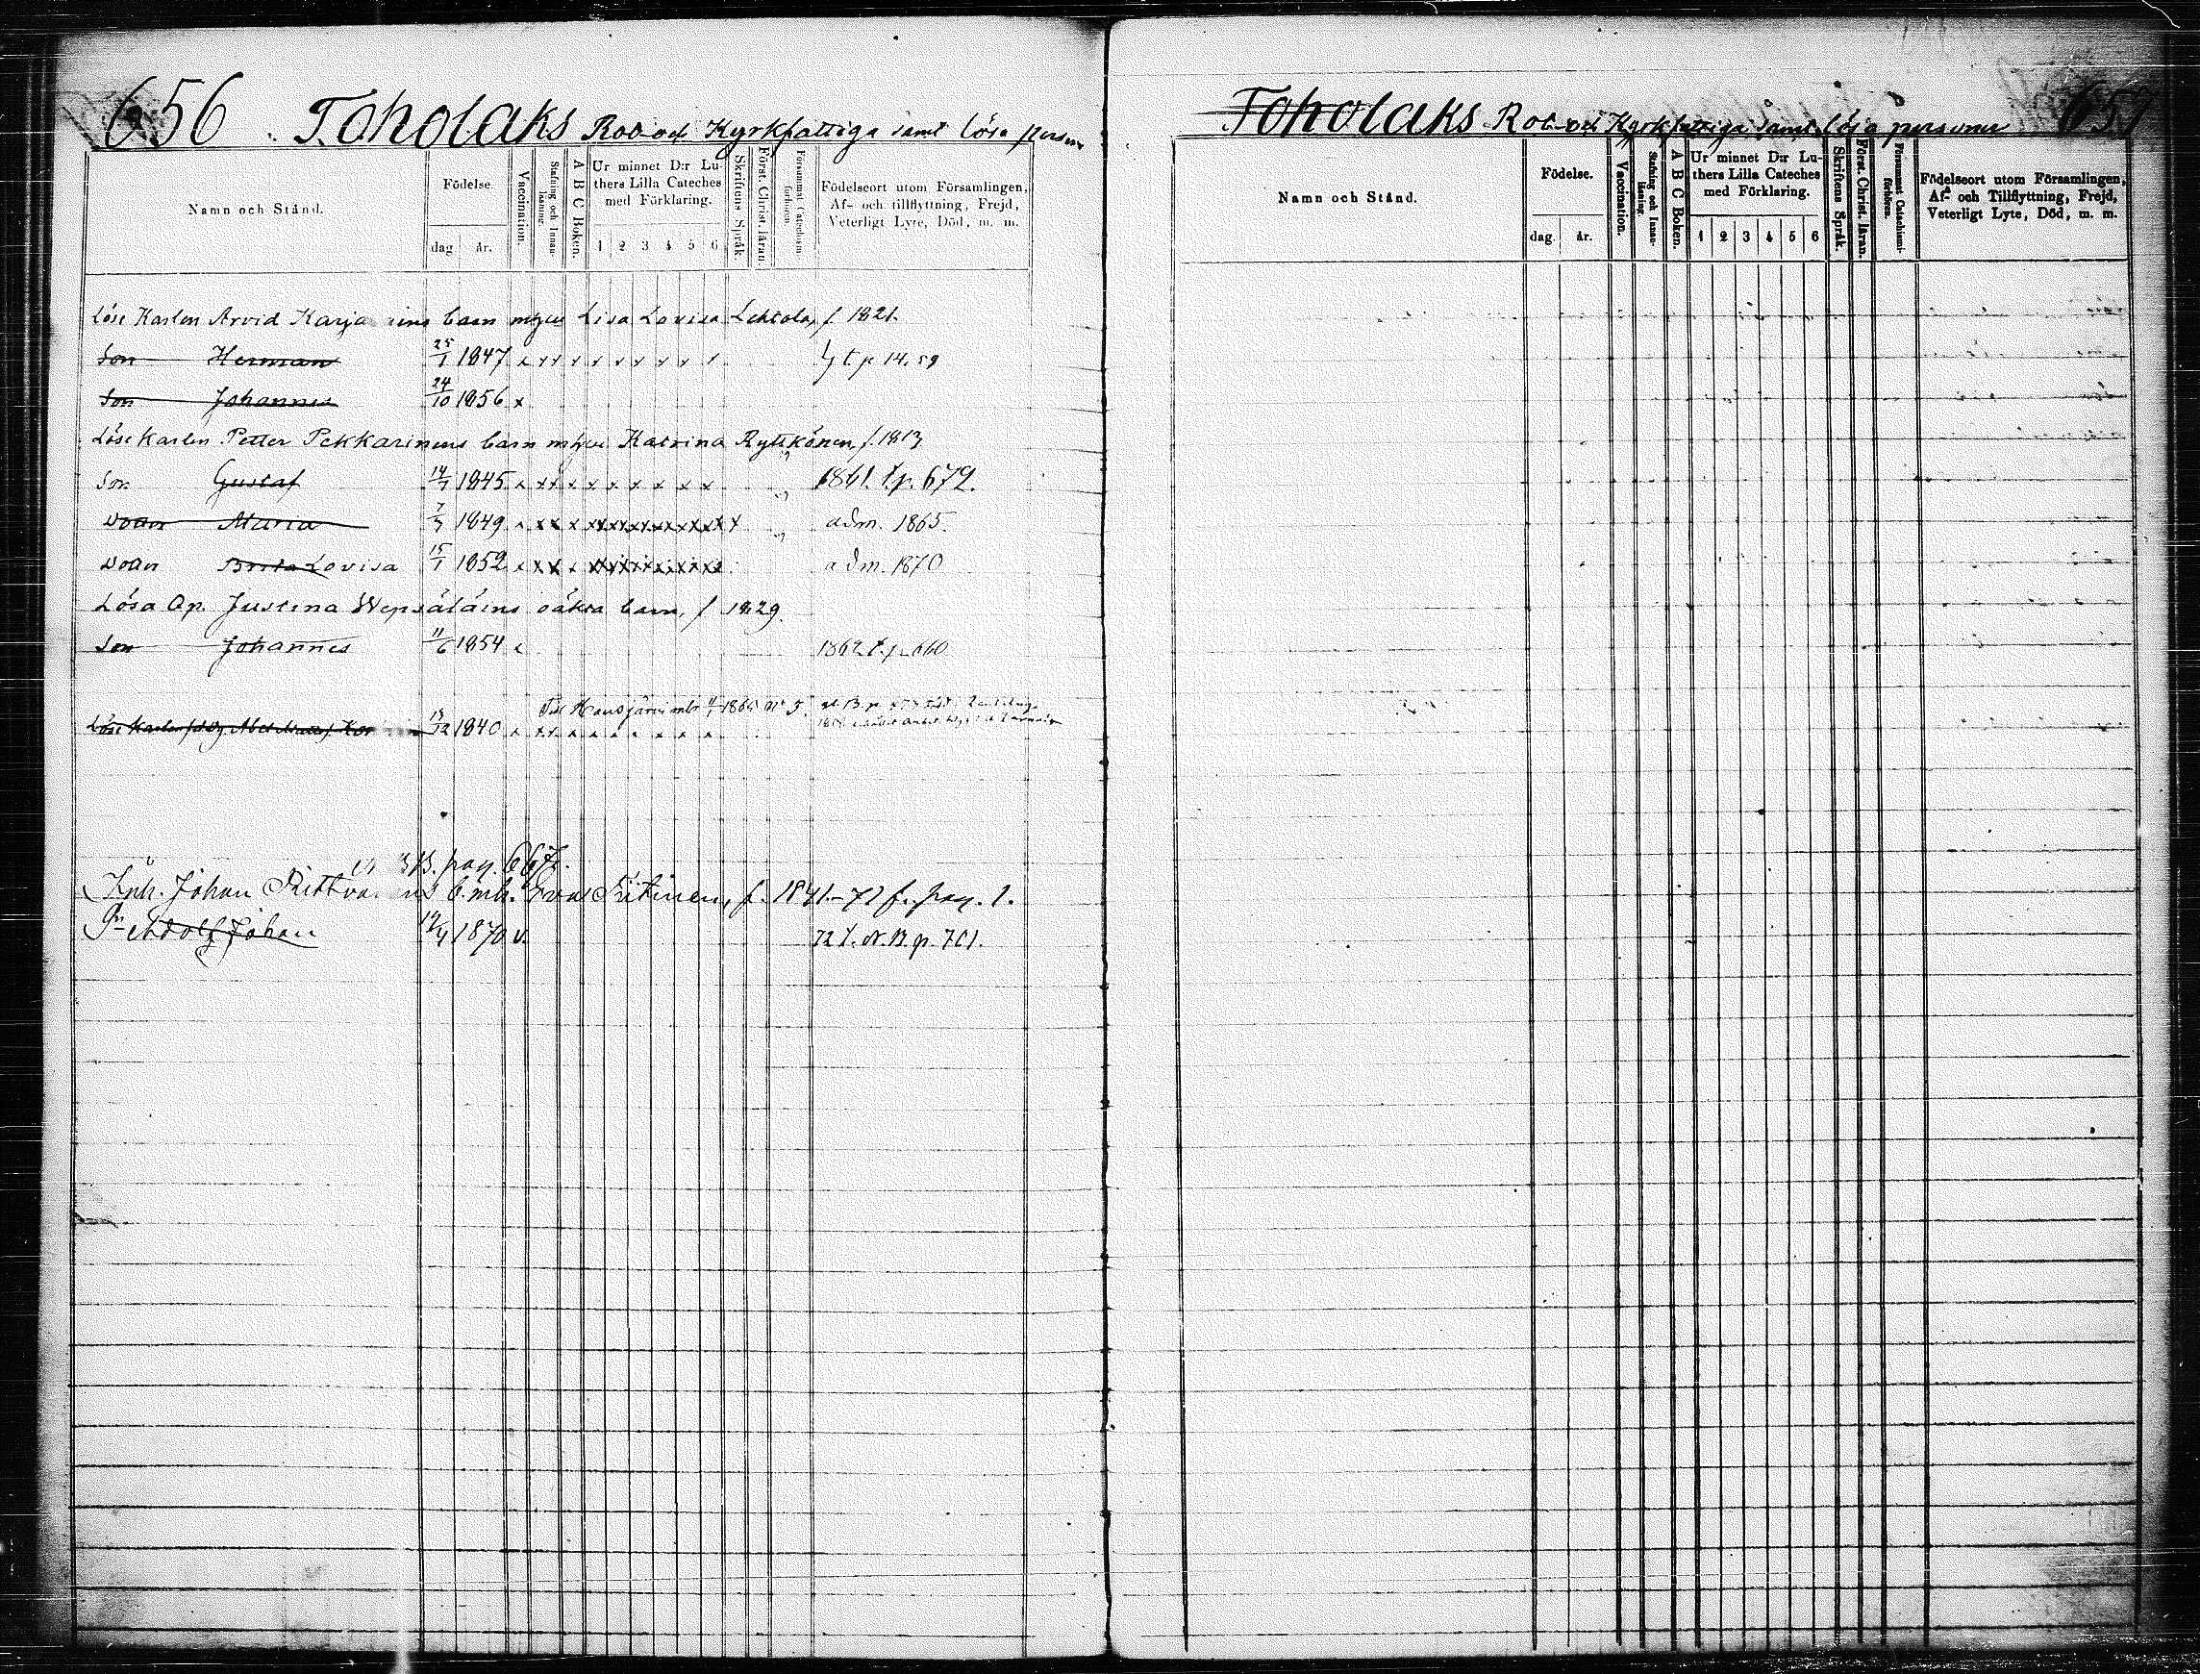 656 Toholaks Rot och Kyrkfattiga samt lösa person
Namn och Stånd.
Födelse.
dag år.
Vaccination.
Stafning och Innan-läsning.
A B C Boken.
Ur minnet D:r Lu-
thers Lilla Cateches
med Förklaring.
1 2 3 4 5 6
Skriftens Språk.
Först. Christ. läran.
Försummat Catechismi-förhören.
Födelseort utom Församlingen,
Af- och tillflyttning, Frejd,
Veterligt Lyte, Död, m. m.
Löse Karlen Arvid barn Lisa Lovisa Lehtola, f. 1821.
Son Herman 25/1 1847 t. p. 14. 59
Son Johannes 24/10 1856
Löse Karlen Petter Pekkarinens barn Katrina Rytkönen, f. 1813
Son Gustaf 14/7 1845 1861. t.p. 679.
Doter Maria 7/7 1849 adm. 1865.
Doter Brita Lovisa 15/1 1852 adm. 1870
Lösa Qp. Justina Wepsäläins oäkta barn, f 1829.
Son Johannes 11/6 1854 1862 t.p. 660
Till Hausjärvi 1866 No 5.
Löse Karlen 13/12 1840
pag. 667.
Inh. Johan b. m. h. Eva f. 1841.-71 fr. pag. 1.
Adolf Johan 1870 v. 72 t. N. B. p. 701.
Toholaks Rot och Kyrkfattiga samt lösa personer 657
Namn och Stånd.
Födelse.
dag år.
Vaccination.
Stafning och Innan-läsning.
A B C Boken.
Ur minnet D:r Lu-
thers Lilla Cateches
med Förklaring.
1 2 3 4 5 6
Skriftens Språk.
Först. Christ. läran.
Försummat Catechismi-förhören.
Födelseort utom Församlingen,
Af- och Tillflyttning, Frejd,
Veterligt Lyte, Död, m. m.